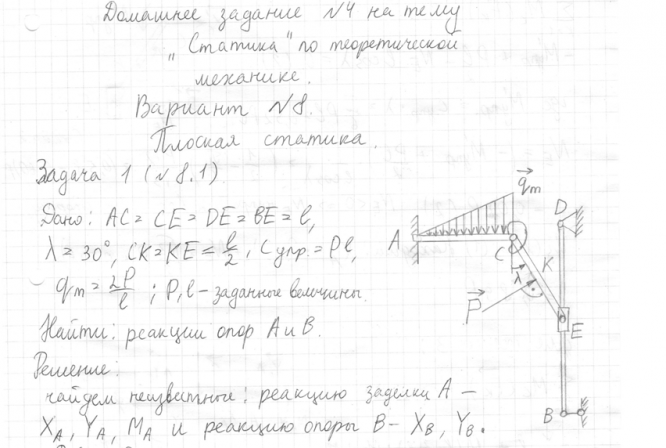 Домашнее задание №4 на тему
„Статика" по теоретической
механике.
Вариант №8.
Плоская статика.
Задача 1 (№8.1)
Дано: AC = CE = DE = BE = l,
λ = 30°, CK = KE = l/2, Cупр. = Pl,
qm = 2P/l ; P, l – заданные величины.
Найти: реакции опор A и B.
Решение:
найдем неизвестные: реакцию заделки A –
XA, YA, MA и реакцию опоры B – XB, YB.
qm
A
C
D
K
λ
P
E
B